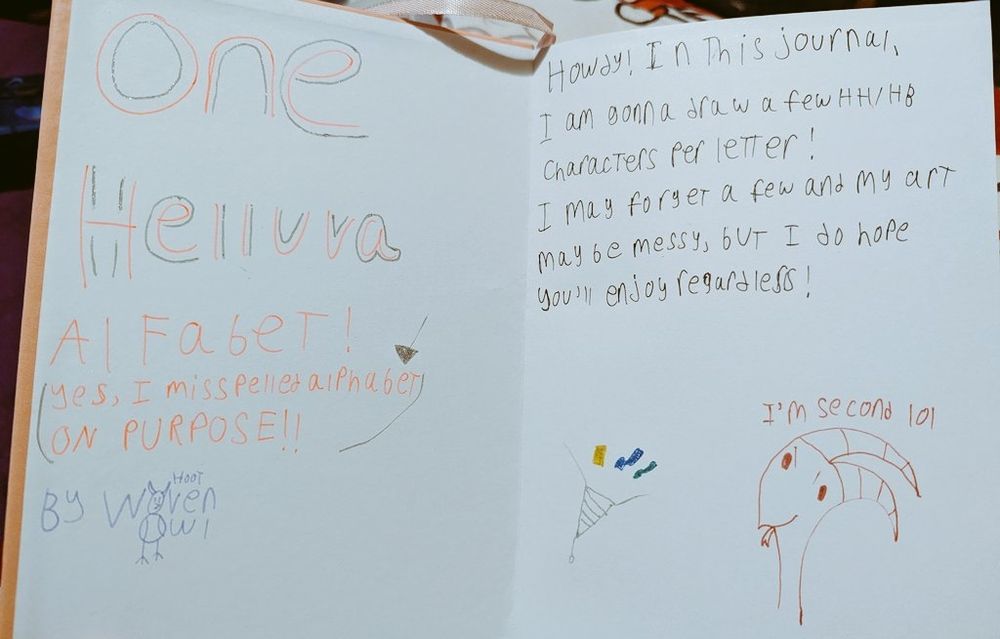 One
Helluva
Alfabet!
(yes, I misspelled alphabet)
ON PURPOSE!!
HOOT
By Woven
Owl
Howdy! In This journal,
I am gonna draw a few HH/HB
characters per letter!
I may forget a few and my art
maybe messy, but I do hope
you'll enjoy regardless!
I'm second lol